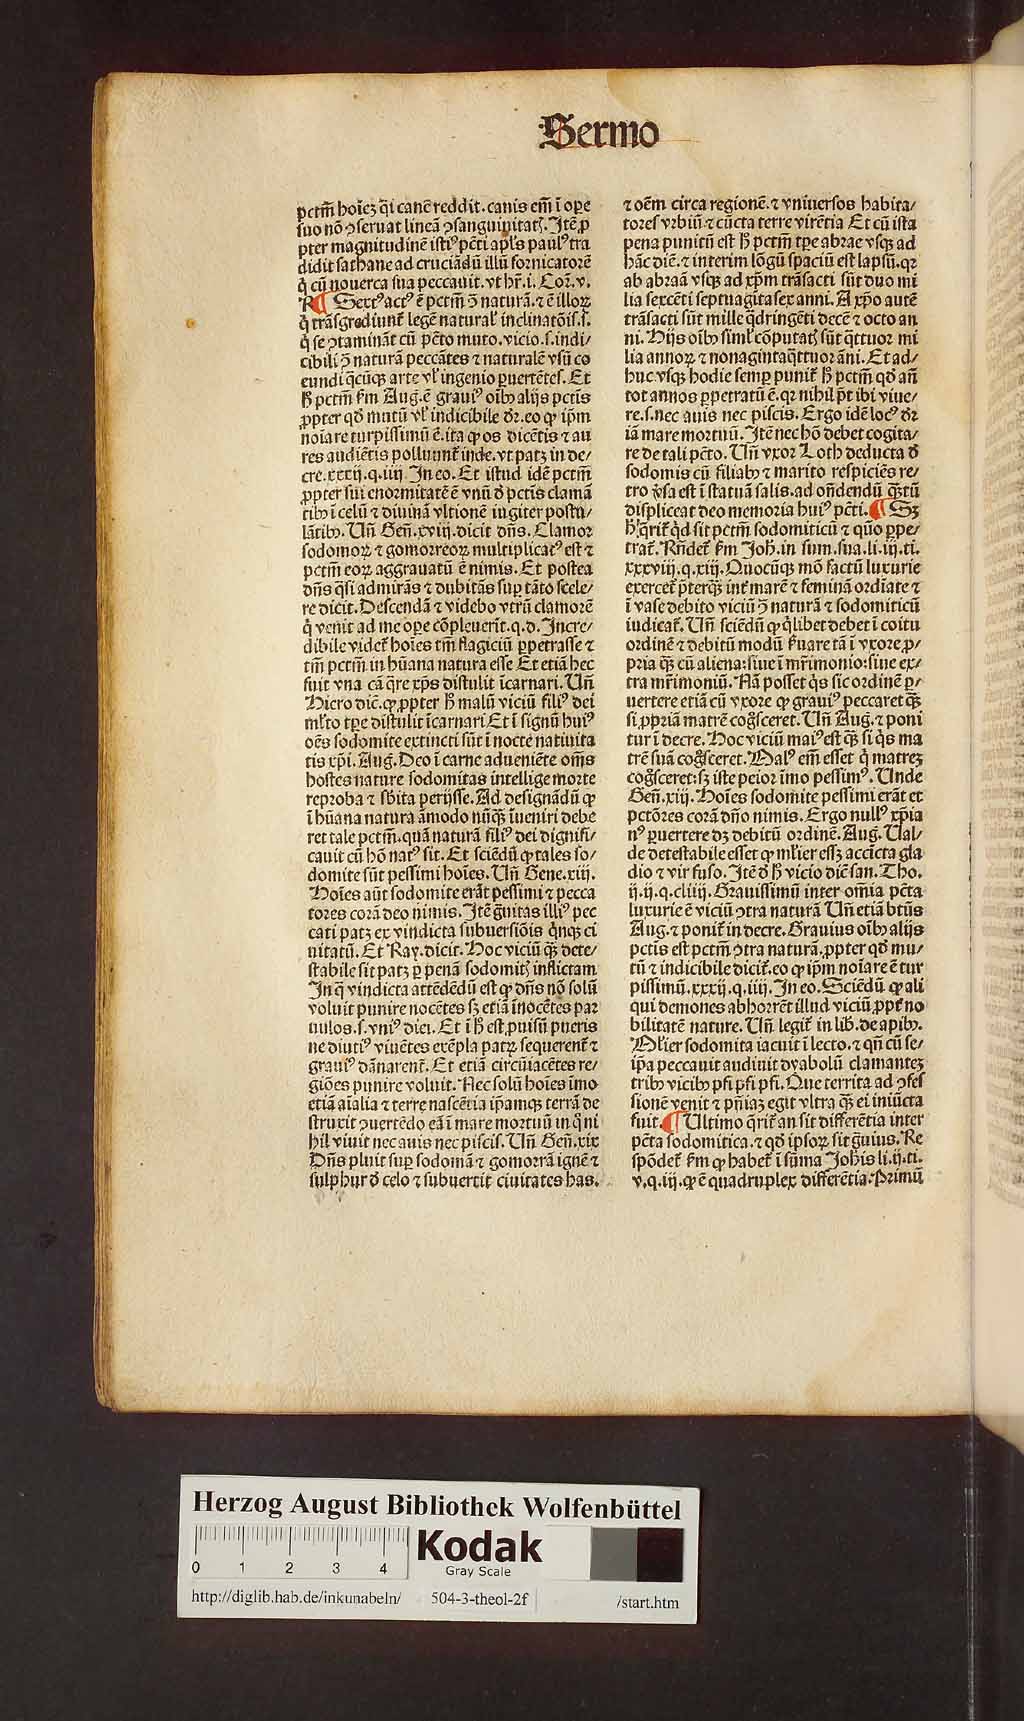 Sermo
pctm̄ hoīez q̄i canē reddit. canis em̄ ī ope
suo nō ꝯseruat lineā ꝯsanguinitatꝭ. Itē ꝓ
pter magnitudinē istiꝰ pcti apl's paulꝰ tra
didit sathane ad cruciādū illū fornicatorē
q̇ cū nouerca sua peccauit. vt hr̄. i. Cor̄. v.
¶ Sextꝰ actꝰ ē pctm̄ ꝯ̄ naturā. ⁊ ē illoꝝ
q̇ trāsgrediunt̄ legē natural' inclinatōis. s.
q̇ se ꝯtamināt cū pcto muto. vicio. s. indi/
cibili ꝯ̄ naturā peccātes ⁊ naturalē vsū co
eundi q̄cūqꝫ arte vl' ingenio ꝑuertētes. Et
h̄ pctm̄ fm Aug. ē grauiꝰ oībꝰ alijs pctis
ꝓpter qd̄ mutū vl' indicibile dr̄. eo ꝙ ip̄m
noīare turpissimū ē. ita ꝙ os dicētis ⁊ au
res audiētis polluunt̄ inde. vt patꝫ in de/
cre. xxxij. q. iiij. In eo. Et istud idē pctm̄
ꝓpter sui enormitatē ē vnū d̄ pctis clamā
tibꝰ ī celū ⁊ diuinā vltionē iugiter postu/
lātibꝰ. Vn̄ Gen̄. xviij. dicit dn̄s. Clamor
sodomoꝝ ⁊ gomorreoꝝ multiplicatꝰ est ⁊
pctm̄ eoꝝ aggrauatū ē nimis. Et postea
dn̄s q̄si admirās ⁊ dubitās suꝑ tāto scele/
re dicit. Descendā ⁊ videbo vtrū clamorē
q̇ venit ad me ope cōpleuerīt. q. d. Incre/
dibile videt̄ hoīes tm̄ flagiciū ꝑpetrasse ⁊
tm̄ pctm̄ in hūana natura esse Et etiā hec
fuit vna cā q̄re xp̄s distulit īcarnari. Vn̄
Hiero dic̄. ꝙ ꝓpter h̄ malū viciū filiꝰ dei
ml'to tꝑe distulit īcarnari Et ī signū huiꝰ
oēs sodomite extincti sūt ī nocte natiuita
tis xp̄i. Aug. Deo ī carne adueniēte om̄s
hostes nature sodomitas intellige morte
reproba ⁊ sb̄ita perijsse. Ad designādū ꝙ
ī hūana natura āmodo nūq̄ꝫ īueniri debe
ret tale pctm̄. quā naturā filiꝰ dei dignifi/
cauit cū hō natꝰ sit. Et sciēdū ꝙ tales so/
domite sūt pessimi hoīes. Vn̄ Gene. xiij.
Hoīes aūt sodomite erāt pessimi ⁊ pecca
tores corā deo nimis. Itē ḡuitas illiꝰ pec
cati patꝫ ex vindicta subuersiōis q̇nqꝫ ci
uitatū. Et Ray. dicit. Hoc viciū q̄ꝫ dete/
stabile sit patꝫ ꝑ penā sodomitꝭ inflictam
In q̄ vindicta attēdēdū est ꝙ dn̄s nō solū
voluit punire nocētes sꝫ etiā īnocētes par
uulos. s. vniꝰ diei. Et ī h̄ est ꝓuisū pueris
ne diutiꝰ viuētes exēpla patꝝ sequerent̄ ⁊
grauiꝰ dānarent̄. Et etiā circūiacētes re/
giōes punire voluit. Nec solū hoīes īmo
etiā aīalia ⁊ terre nascētia ip̄amqꝫ terrā de
struxit ꝯuertēdo eā ī mare mortuū in q̇ ni
hil viuit nec auis nec piscis. Vn̄ Gen̄. xix
Dn̄s pluit suꝑ sodomā ⁊ gomorrā ignē ⁊
sulphur d̄ celo ⁊ subuertit ciuitates has.
⁊ oēm circa regionē. ⁊ vniuersos habita/
tores vrbiū ⁊ cūcta terre virētia Et cū ista
pena punitū est h̄ pctm̄ tꝑe abrae vsqꝫ ad
hāc diē. ⁊ interim lōgū spaciū est lapsū. qꝛ
ab abraā vsqꝫ ad xp̄m trāsacti sūt duo mi
lia sexcēti septuagīta sex anni. A xp̄o autē
trāsacti sūt mille q̄dringēti decē ⁊ octo an
ni. Hijs oībꝰ siml' cōputatꝭ sūt q̄ttuor mi
lia annoꝝ ⁊ nonagīntaq̄ttuor āni. Et ad/
huc vsqꝫ hodie semꝑ punit̄ h̄ pctm̄ qd̄ an̄
tot annos ꝑpetratū ē. qꝛ nihil pt̄ ibi viue/
re. s. nec auis nec piscis. Ergo idē locꝰ dr̄
iā mare mortuū. Itē nec hō debet cogita/
re de tali pcto. Vn̄ vxor Loth deducta d̄
sodomis cū filiabꝰ ⁊ marito respiciēs re/
tro v̄sa est ī statuā salis. ad on̄dendū q̄ꝫtū
displiceat deo memoria huiꝰ pcti. ¶ Sꝫ
h̄ q̇rit̄ q̇d sit pctm̄ sodomiticū ⁊ quō ꝑpe/
trat̄. Rn̄det̄ fm Joh̄. in sum. sua. li. iij. ti.
xxxviij. q. xiij. Quocūqꝫ mō factū luxurie
exercet̄ p̄terq̄ꝫ int̄ marē ⁊ feminā ordīate ⁊
ī vase debito viciū ꝯ̄ naturā ⁊ sodomiticū
iudicat̄. Vn̄ sciēdū ꝙ q̇libet debet ī coitu
ordinē ⁊ debitū modū f̄uare tā ī vxore ꝓ/
pria q̄ꝫ cū aliena: siue ī mr̄imonio: siue ex/
tra mr̄imoniū. Nā posset q̇s sic ordinē ꝑ/
uertere etiā cū vxore ꝙ grauiꝰ peccaret q̄ꝫ
si ꝓpriā matrē cog̊sceret. Vn̄ Aug. ⁊ poni
tur ī decre. Hoc viciū maiꝰ est q̄ꝫ si q̇s ma
trē suā cog̊sceret. Malꝰ em̄ esset q̇ matrez
cog̊sceret: sꝫ iste peior īmo pessimꝰ. Unde
Gen̄. xiij. Hoīes sodomite pessimi erāt et
pctōres corā dn̄o nimis. Ergo nullꝰ xp̄ia
nꝰ ꝑuertere dꝫ debitū ordinē. Aug. Ual/
de detestabile esset ꝙ ml'ier essꝫ accīcta gla
dio ⁊ vir fuso. Itē d̄ h̄ vicio dic̄ san. Tho.
ij. ij. q. cliiij. Grauissimū inter om̄ia pcta
luxurie ē viciū ꝯtra naturā Vn̄ etiā btūs
Aug. ⁊ ponit̄ in decre. Grauius oībꝰ alijs
pctis est pctm̄ ꝯtra naturā. ꝓpter qd̄ mu/
tū ⁊ indicibile dicit̄. eo ꝙ ip̄m noīare ē tur
pissimū. xxxij. q. iiij. In eo. Sciēdū ꝙ ali
qui demones abhorrēt illud viciū ꝓpt̄ no
bilitatē nature. Vn̄ legit̄ in lib. de apibꝰ.
Ml'ier sodomita iacuit ī lecto. ⁊ qn̄ cū se/
ip̄a peccauit audiuit dyabolū clamantez
tribꝰ vicibꝰ pfi pfi pfi. Que territa ad ꝯfes
sionē venit ⁊ pn̄iaꝫ egit vltra q̄ꝫ ei iniūcta
fuit. ¶ Ultimo q̇rit̄ an sit differētia inter
pcta sodomitica. ⁊ qd̄ ipsoꝝ sit ḡuius. Re
spōdet̄ fm ꝙ habet̄ ī sūma Joh̄is li. ij. ti.
v. q. iij. ꝙ ē quadruplex differētia. Primū
Herzog August Bibliothek Wolfenbüttel
0 1 2 3 4
Kodak
Gray Scale
http://diglib.hab.de/inkunabeln/ 504-3-theol-2f /start.htm